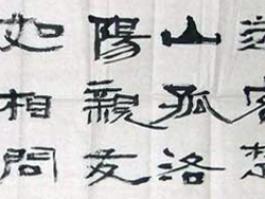 山孤洛
陽親友
如相問